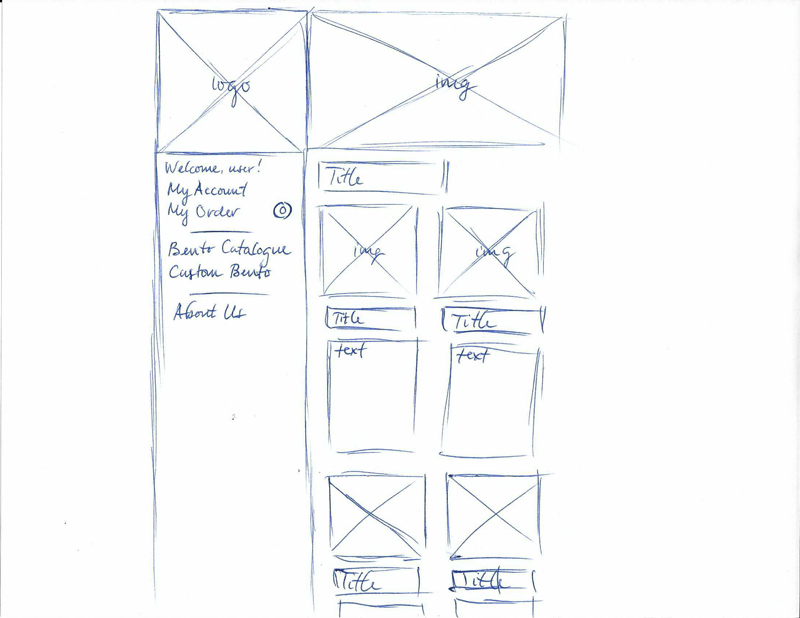 logo
img
Welcome, user!
My Account
My Order 0
Bento Catalogue
Custom Bento
About Us
Title
img img
Title Title
text text
Title Title